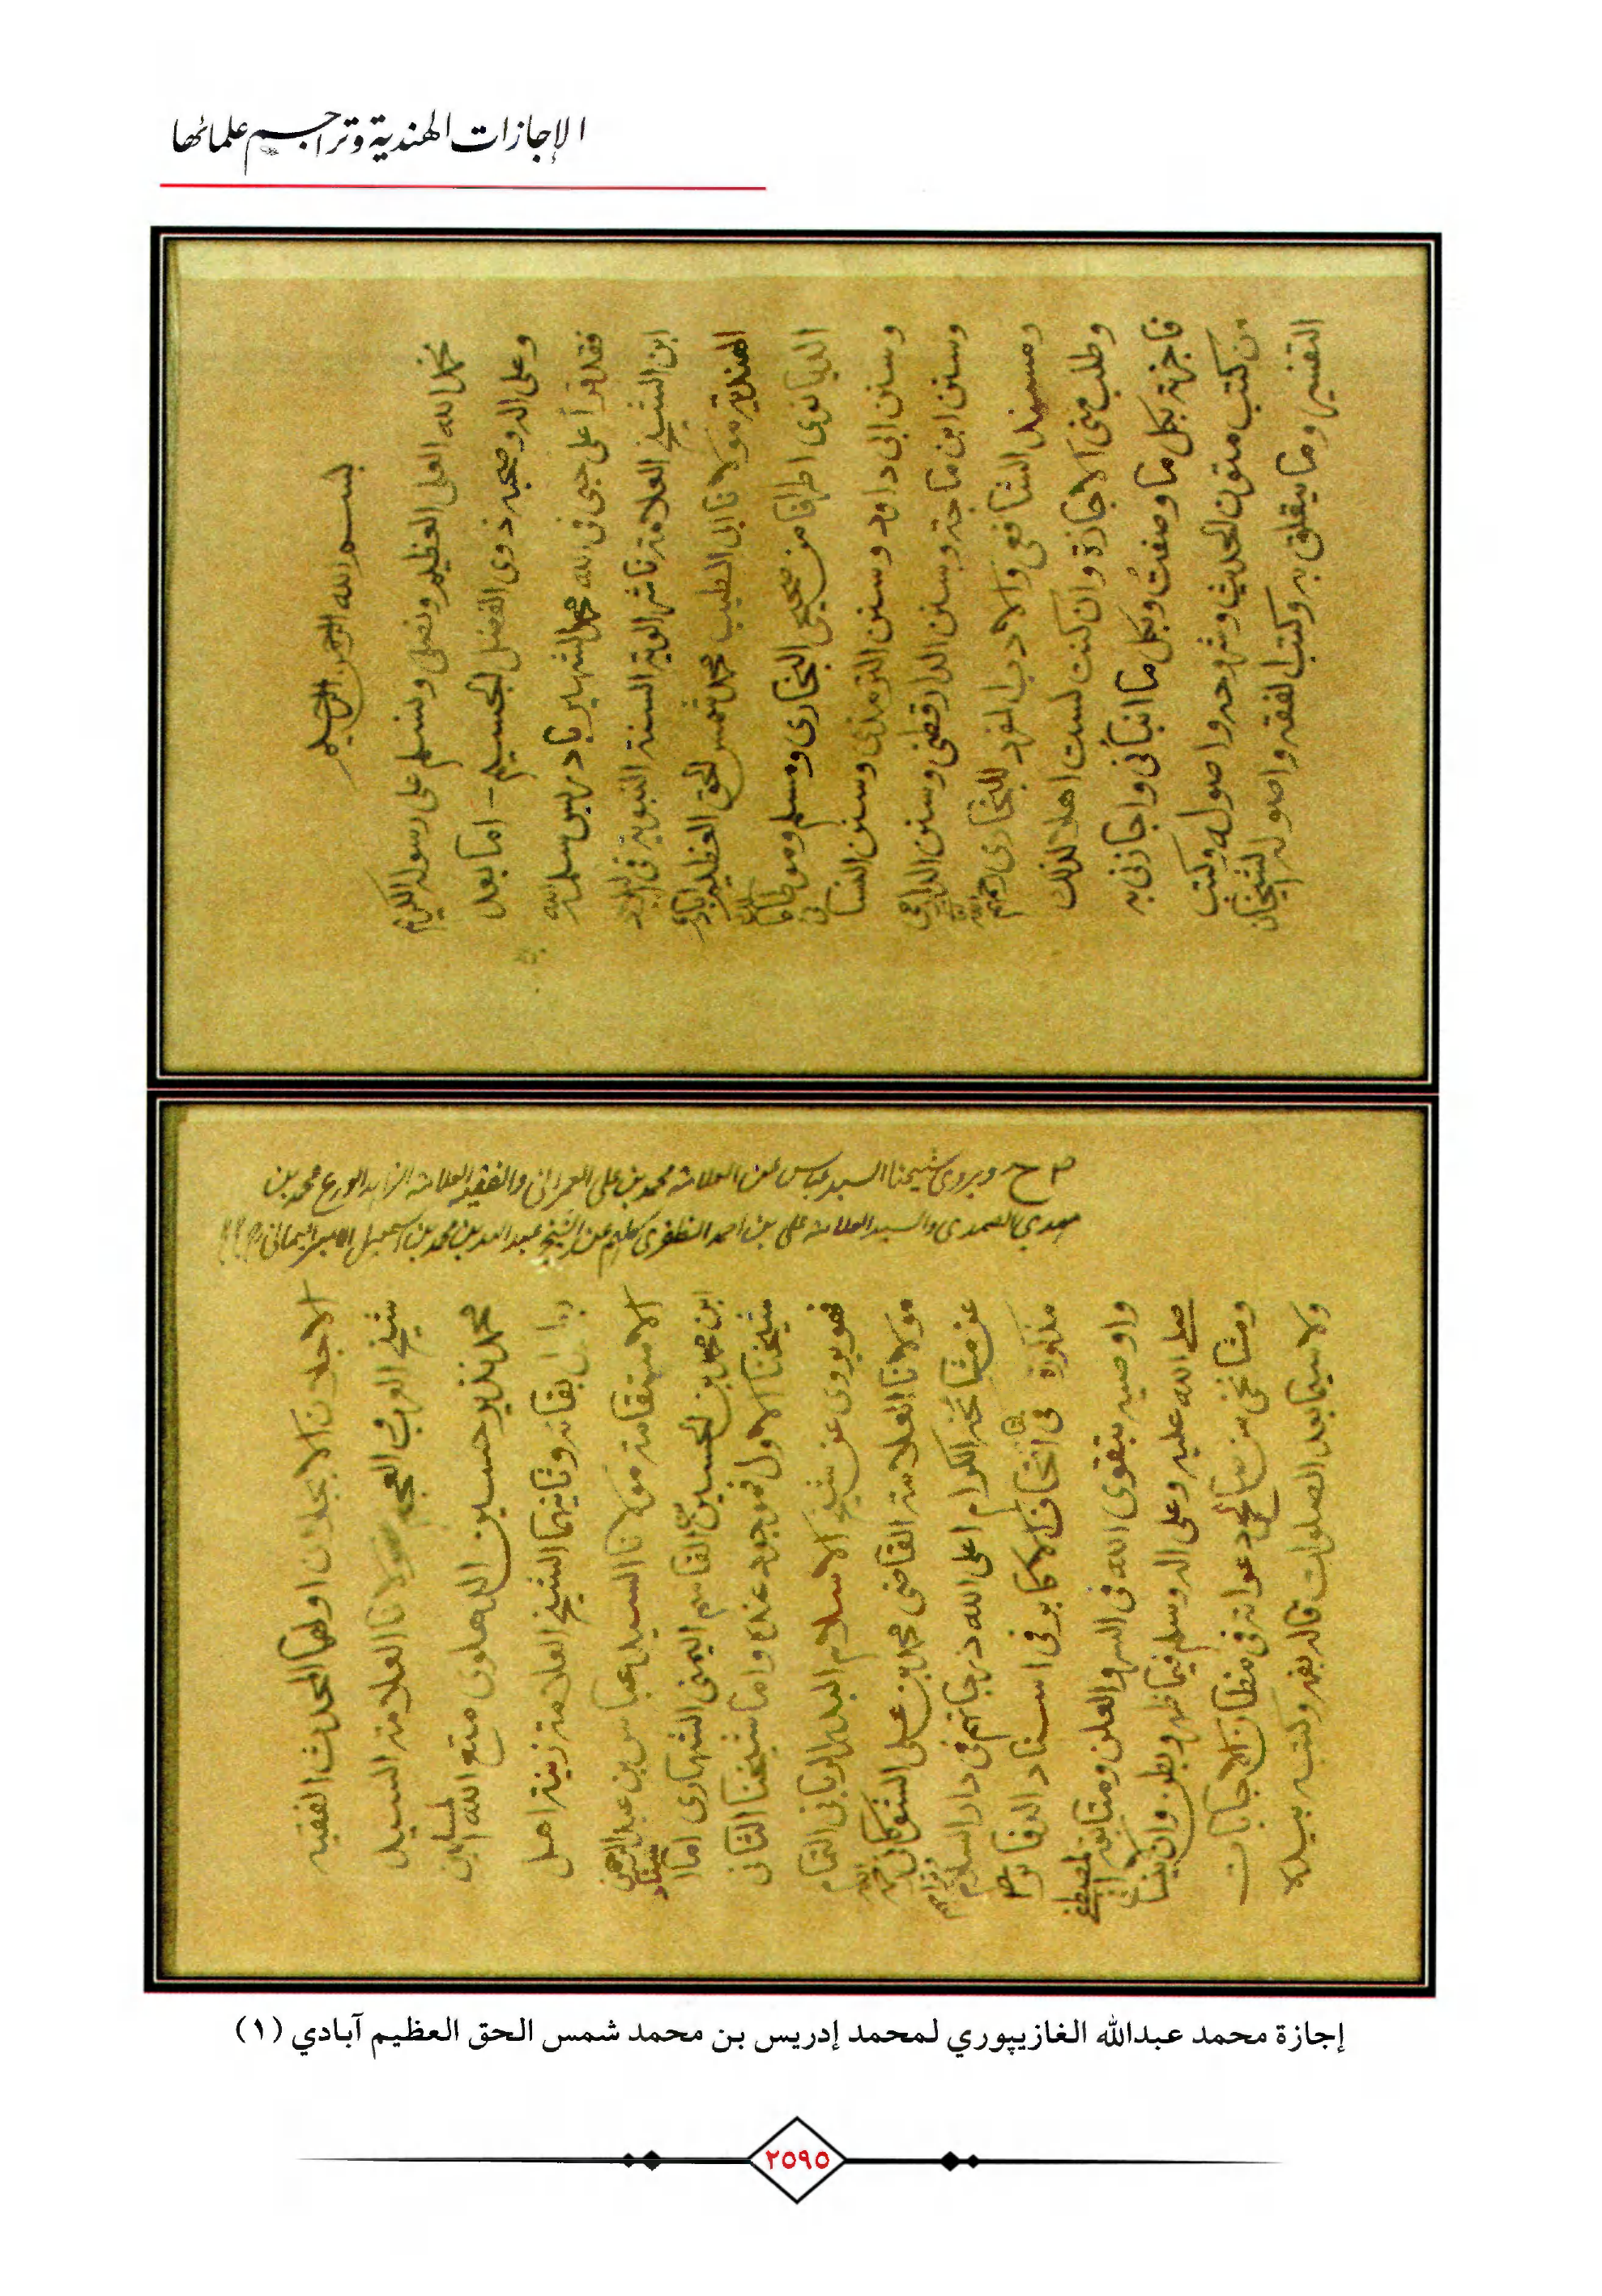 الإجازات الهندية وتراجم علمائها
بسم الله الرحمن الرحيم
نحمد الله العلي العظيم ونصلي ونسلم على رسوله الكريم
وعلى اله وصحبه ذوى الفضل الجسيم - اما بعد
فقد قرأ على حبى فى الله محمد الشهير بادريس سلمه الله
ابن الشيخ العلامة ناشر الوية السنة النبوية فى
الهندية مولانا ابى الطيب محمد شمس الحق العظيم آبادى
الديانوى اطرافا من صحيحى البخارى ومسلم وموطا
وسنن ابى داود وسنن الترمذى وسنن النسائى
وسنن ابن ماجة وسنن الدارقطنى وسنن الدارمى
ومسند الشافعى والادب المفرد للبخارى
وطلب منى الاجازة وان كنت لست اهلا لذلك
فاجزته بكل ما وصفت وبكل ما انبأنى واجازنى به
من كتب متون الحديث وشروحه واصوله وكتب
التفسير وما يتعلق به وكتب الفقه واصوله الشيخان
م ح ويروى شيخنا السيد عباس عن العلامة محمد بن على العمرانى والفقيه العلامة الزاهد الورع محمد بن
مهدى الصمدى والسيد العلامة على بن احمد الظفرى كلهم عن الشيخ عبد الله بن محمد بن اسمعيل الامير اليمانى
الاجلان الاجلان اولهما المحدث الفقيه
شيخ العرب والعجم مولانا العلامة السيد
محمد نذير حسين الدهلوى متع الله المسلمين
بقائه وثانيهما الشيخ العلامة زينة اهل
الاستقامة مولانا السيد عباس بن عبد الرحمن
ابن محمد بن الحسين بن القاسم اليمنى الشهارى اما
شيخنا الاول فموجود عنده واما شيخنا الثانى
فهو يروى عن شيخ الاسلام البدر الربانى
مولانا العلامة القاضى محمد بن على الشوكانى
عن مشائخه الكرام اعلى الله درجاتهم فى دار السلام
مذكورة فى اتحاف الاكابر فى اسناد الدفاتر
واوصيه بتقوى الله فى السر والعلن ومتابعة المصطفى
صلى الله عليه وعلى اله وسلم فيما ظهر وبطن وان لا ينسانى
ومشائخى من صالح دعواته فى مظان الاجابات
ولا سيما بعد الصلوات قاله بفمه وكتبه بيده
إجازة محمد عبدالله الغازيپوري لمحمد إدريس بن محمد شمس الحق العظيم آبادي (١)
٢٥٩٥